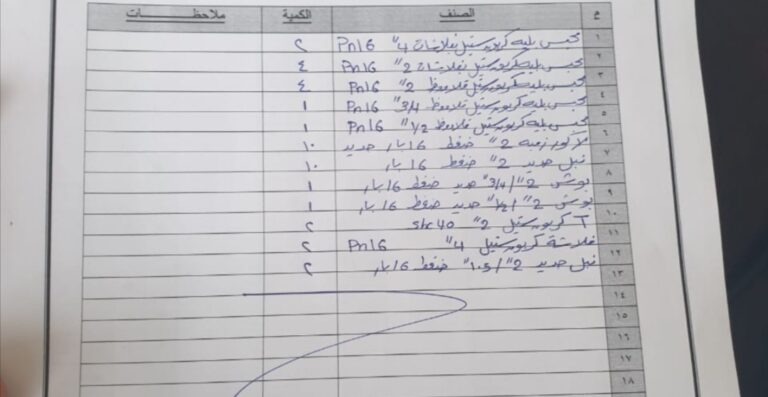 م الصنف الكمية ملاحظات
١ محبس بليه كربون ستيل بفلانشات 4" Pn16 ٢
٢ محبس بليه كربون ستيل بفلانشات 2" Pn16 ٤
٣ محبس بليه كربون ستيل قلاووظ 2" Pn16 ٤
٤ محبس بليه كربون ستيل قلاووظ 3/4" Pn16 ١
٥ محبس بليه كربون ستيل قلاووظ 1/2" Pn16 ١
٦ لاكور زهر 2" ضغط 16 بار حديد ١٠
٧ نبل حديد 2" ضغط 16 بار ١٠
٨ بوش 2"/3/4" حديد ضغط 16 بار ١
٩ بوش 2"/1/2" حديد ضغط 16 بار ١
١٠ T كربون ستيل 2" sch 40 ٢
١١ فلانشة كربون ستيل 4" Pn16 ٢
١٢ نبل حديد 2"/1.5" ضغط 16 بار ٢
١٣
١٤
١٥
١٦
١٧
١٨